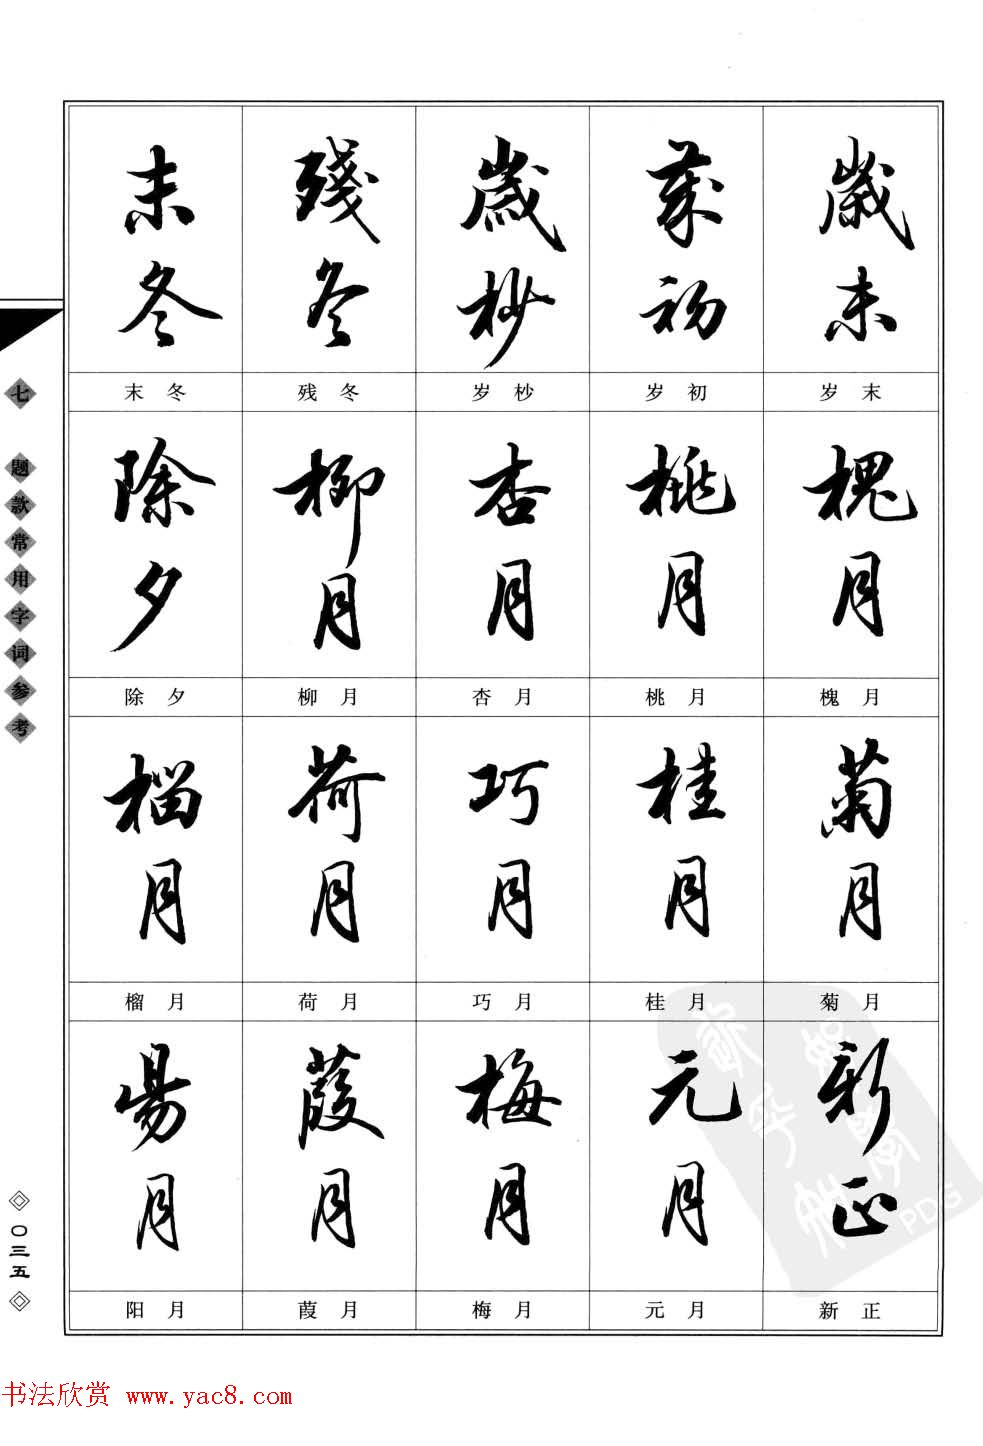 末冬 殘冬 歲杪 歲初 歲末
末冬 残冬 岁杪 岁初 岁末
除夕 柳月 杏月 桃月 槐月
除夕 柳月 杏月 桃月 槐月
榴月 荷月 巧月 桂月 菊月
榴月 荷月 巧月 桂月 菊月
昜月 葭月 梅月 元月 新正
阳月 葭月 梅月 元月 新正
七 题款常用字词参考
〇三五
PDG
书法欣赏 www.yac8.com